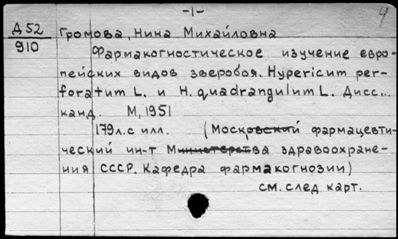 -1-
4
Д 52
910
Громова, Нина Михайловна
Фармакогностическое изучение евро-
пейских видов зверобоя. Hypericum per-
foratum L. и H. quadrangulum L. Дисс...
канд. М, 1951
179 л. с илл. (Московский фармацевти-
ческий ин-т Министерства здравоохране-
ния СССР. Кафедра фармакогнозии)
см. след карт.